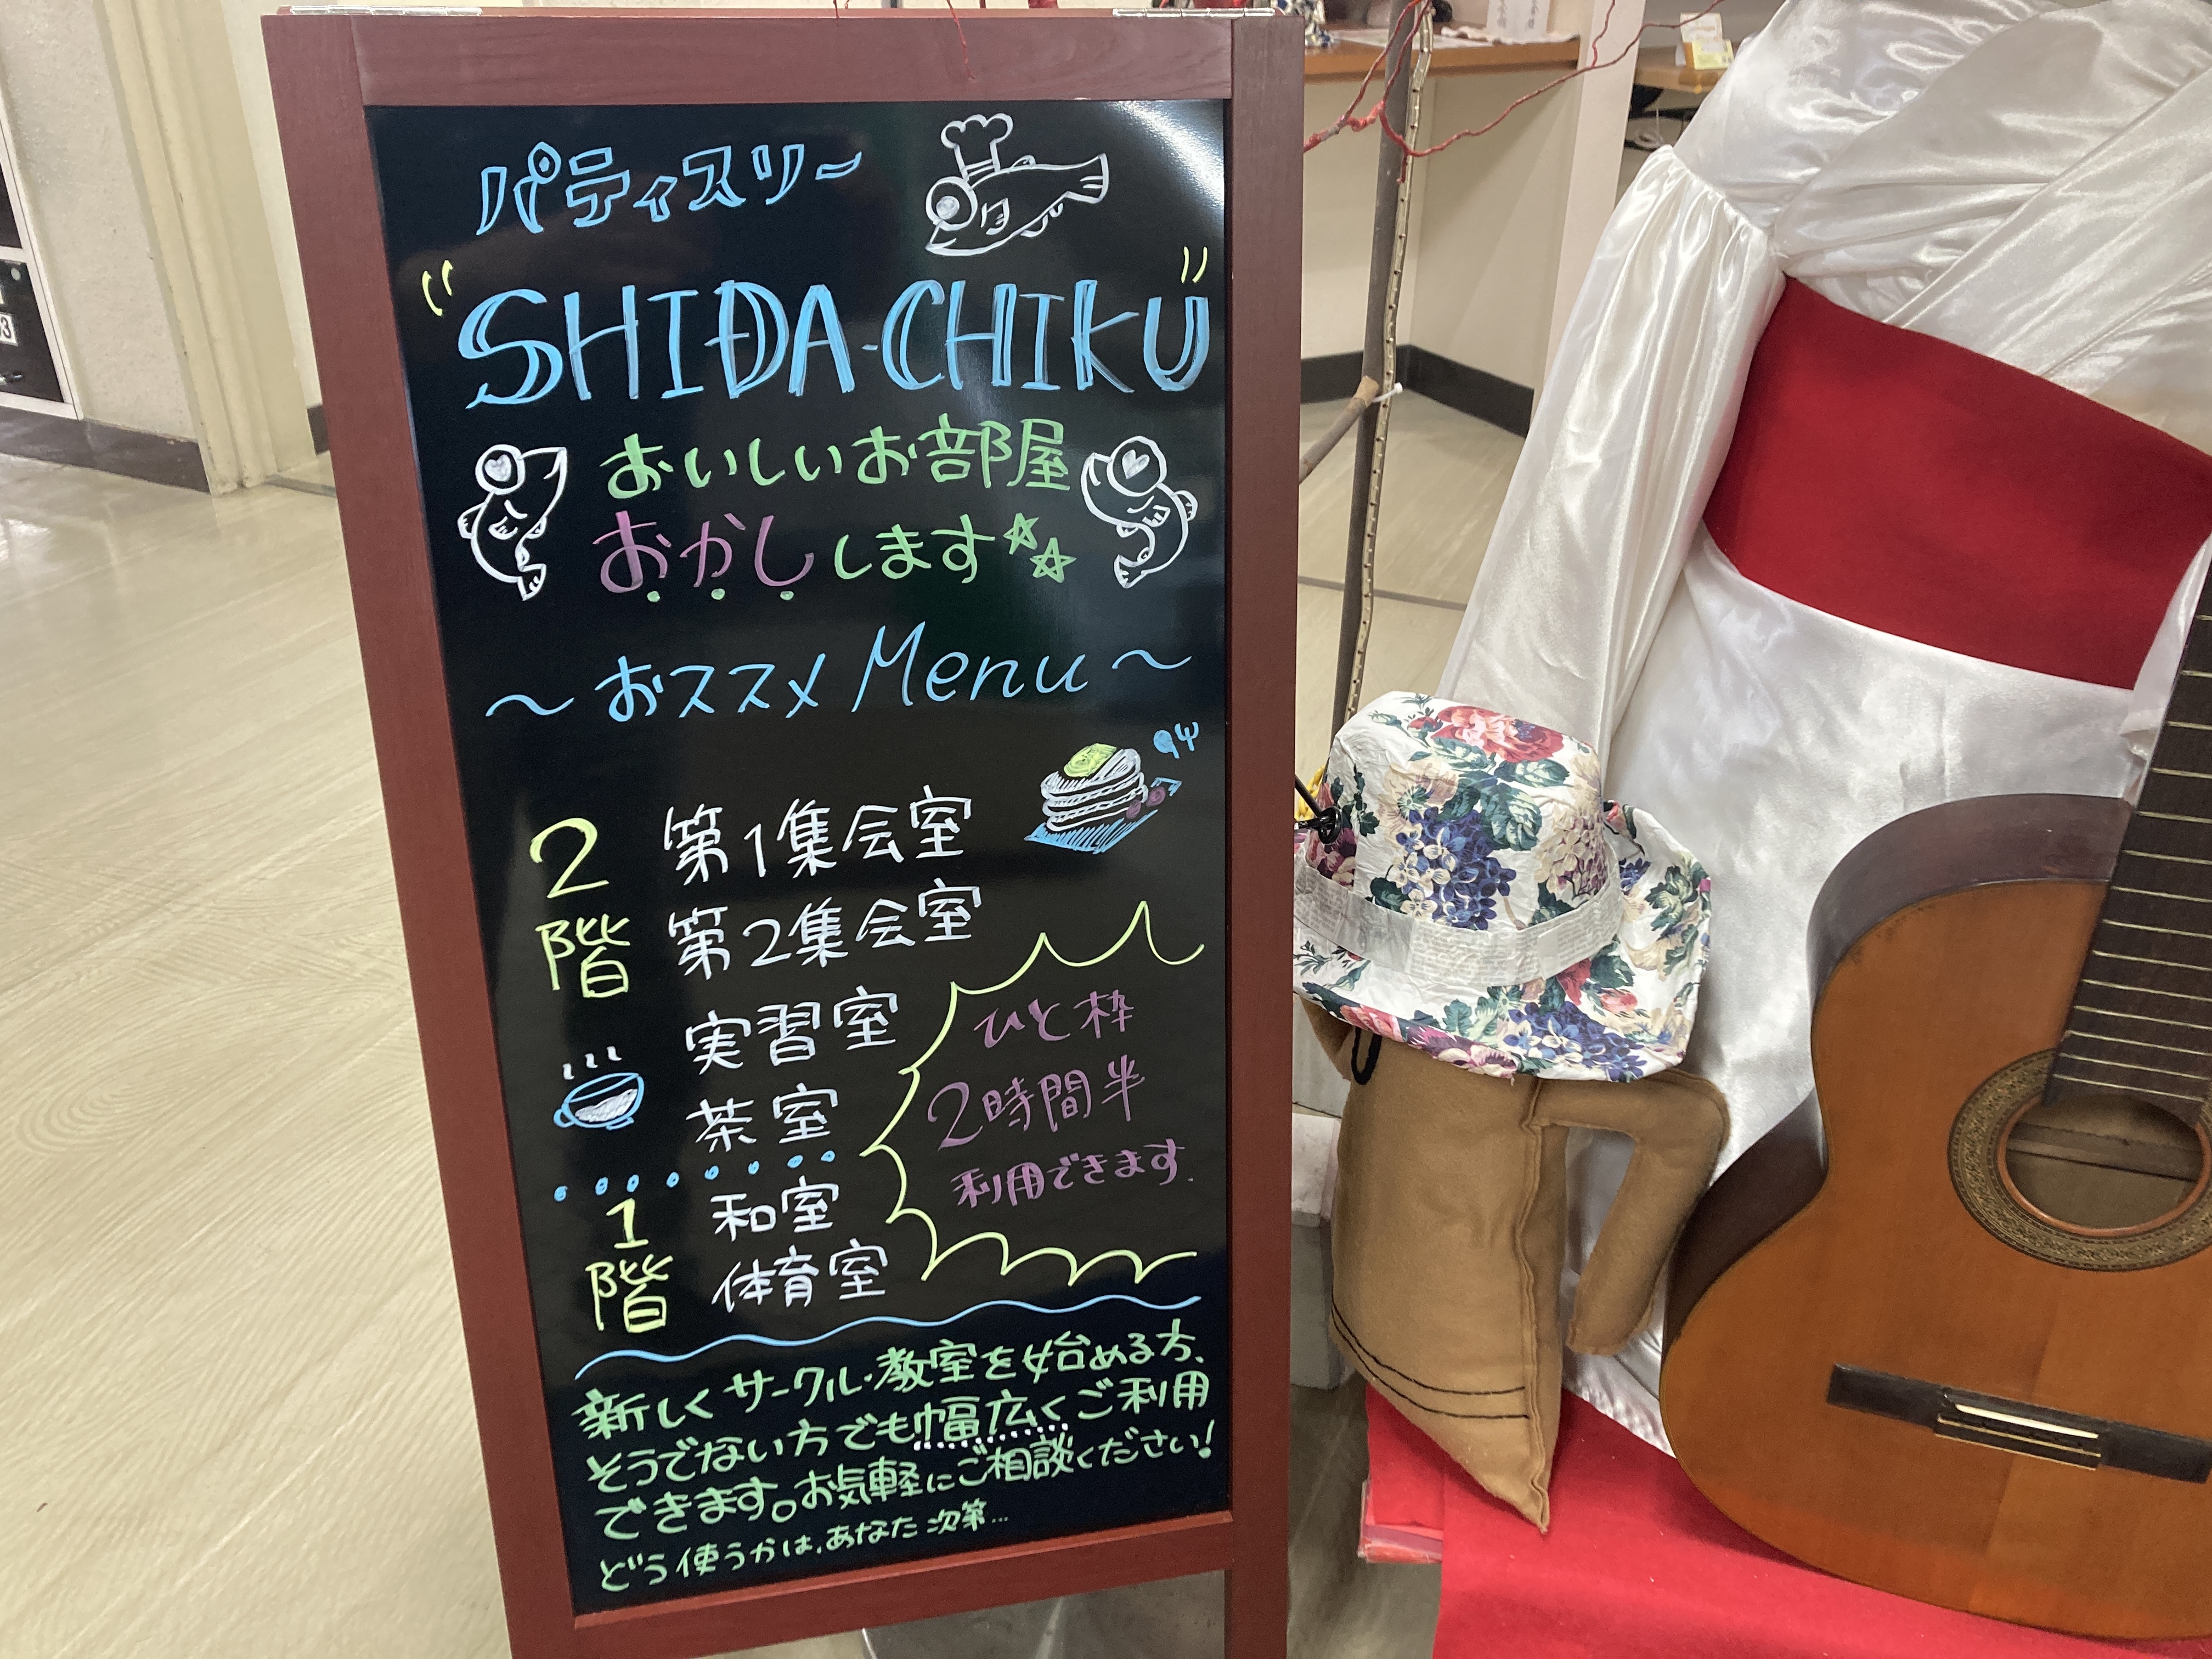 パティスリー
"SHIDA-CHIKU"
おいしいお部屋
おかしします☆☆
～おススメMenu～
2階
第1集会室
第2集会室
実習室
茶室
1階
和室
体育室
ひと枠
2時間半
利用できます.
新しくサークル・教室を始める方、
そうでない方でも幅広くご利用
できます。お気軽にご相談ください!
どう使うかは、あなた次第…